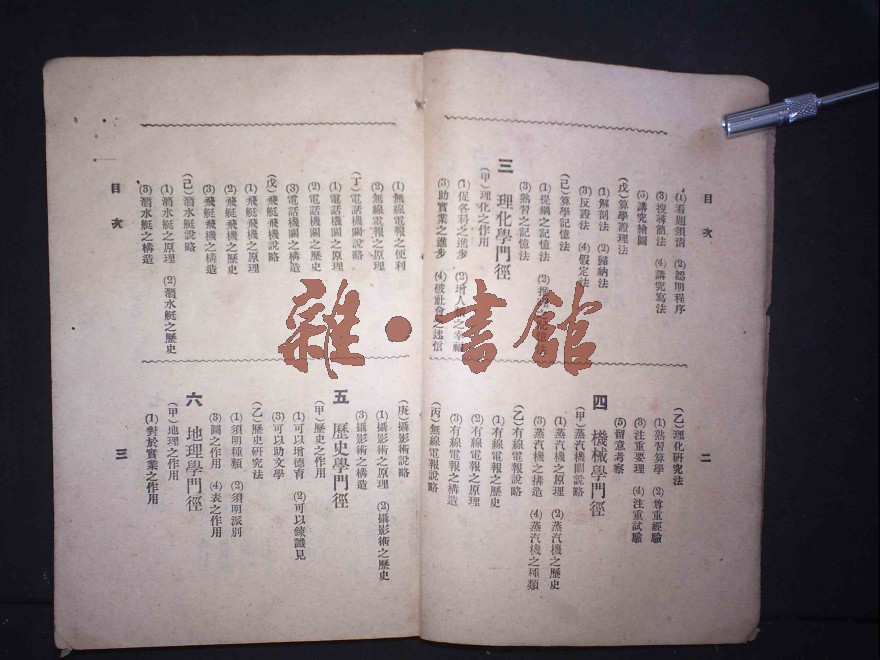 目次
(1)看題須清 (2)認明程序
(3)搜尋簡法 (4)講究寫法
(5)講究繪圖
(戊)算學證理法
(1)解剖法 (2)歸納法
(3)反證法 (4)假定法
(己)算學記憶法
(1)提綱之記憶法 (2)推
(3)熟習之記憶法
三 理化學門徑
(甲)理化之作用
(1)促各科之進步 (2)增人類之幸福
(3)助實業之進步 (4)破社會之迷信
二
(乙)理化研究法
(1)熟習算學 (2)尊重經驗
(3)注重要理 (4)注重試驗
(5)留意考察
四 機械學門徑
(甲)蒸汽機關說略
(1)蒸汽機之原理 (2)蒸汽機之歷史
(3)蒸汽機之構造 (4)蒸汽機之種類
(乙)有線電報說略
(1)有線電報之歷史
(2)有線電報之原理
(3)有線電報之構造
(丙)無線電報說略
目次
(1)無線電報之便利
(2)無線電報之原理
(丁)電話機關說略
(1)電話機關之原理
(2)電話機關之歷史
(3)電話機關之構造
(戊)飛艇飛機說略
(1)飛艇飛機之原理
(2)飛艇飛機之歷史
(3)飛艇飛機之構造
(己)潛水艇說略
(1)潛水艇之原理 (2)潛水艇之歷史
(3)潛水艇之構造
三
(庚)攝影術說略
(1)攝影術之原理 (2)攝影術之歷史
(3)攝影術之構造
五 歷史學門徑
(甲)歷史之作用
(1)可以增德育 (2)可以鍊識見
(3)可以助文學
(乙)歷史研究法
(1)須明種類 (2)須明派別
(3)圖之作用 (4)表之作用
六 地理學門徑
(甲)地理之作用
(1)對於實業之作用
雜·書館